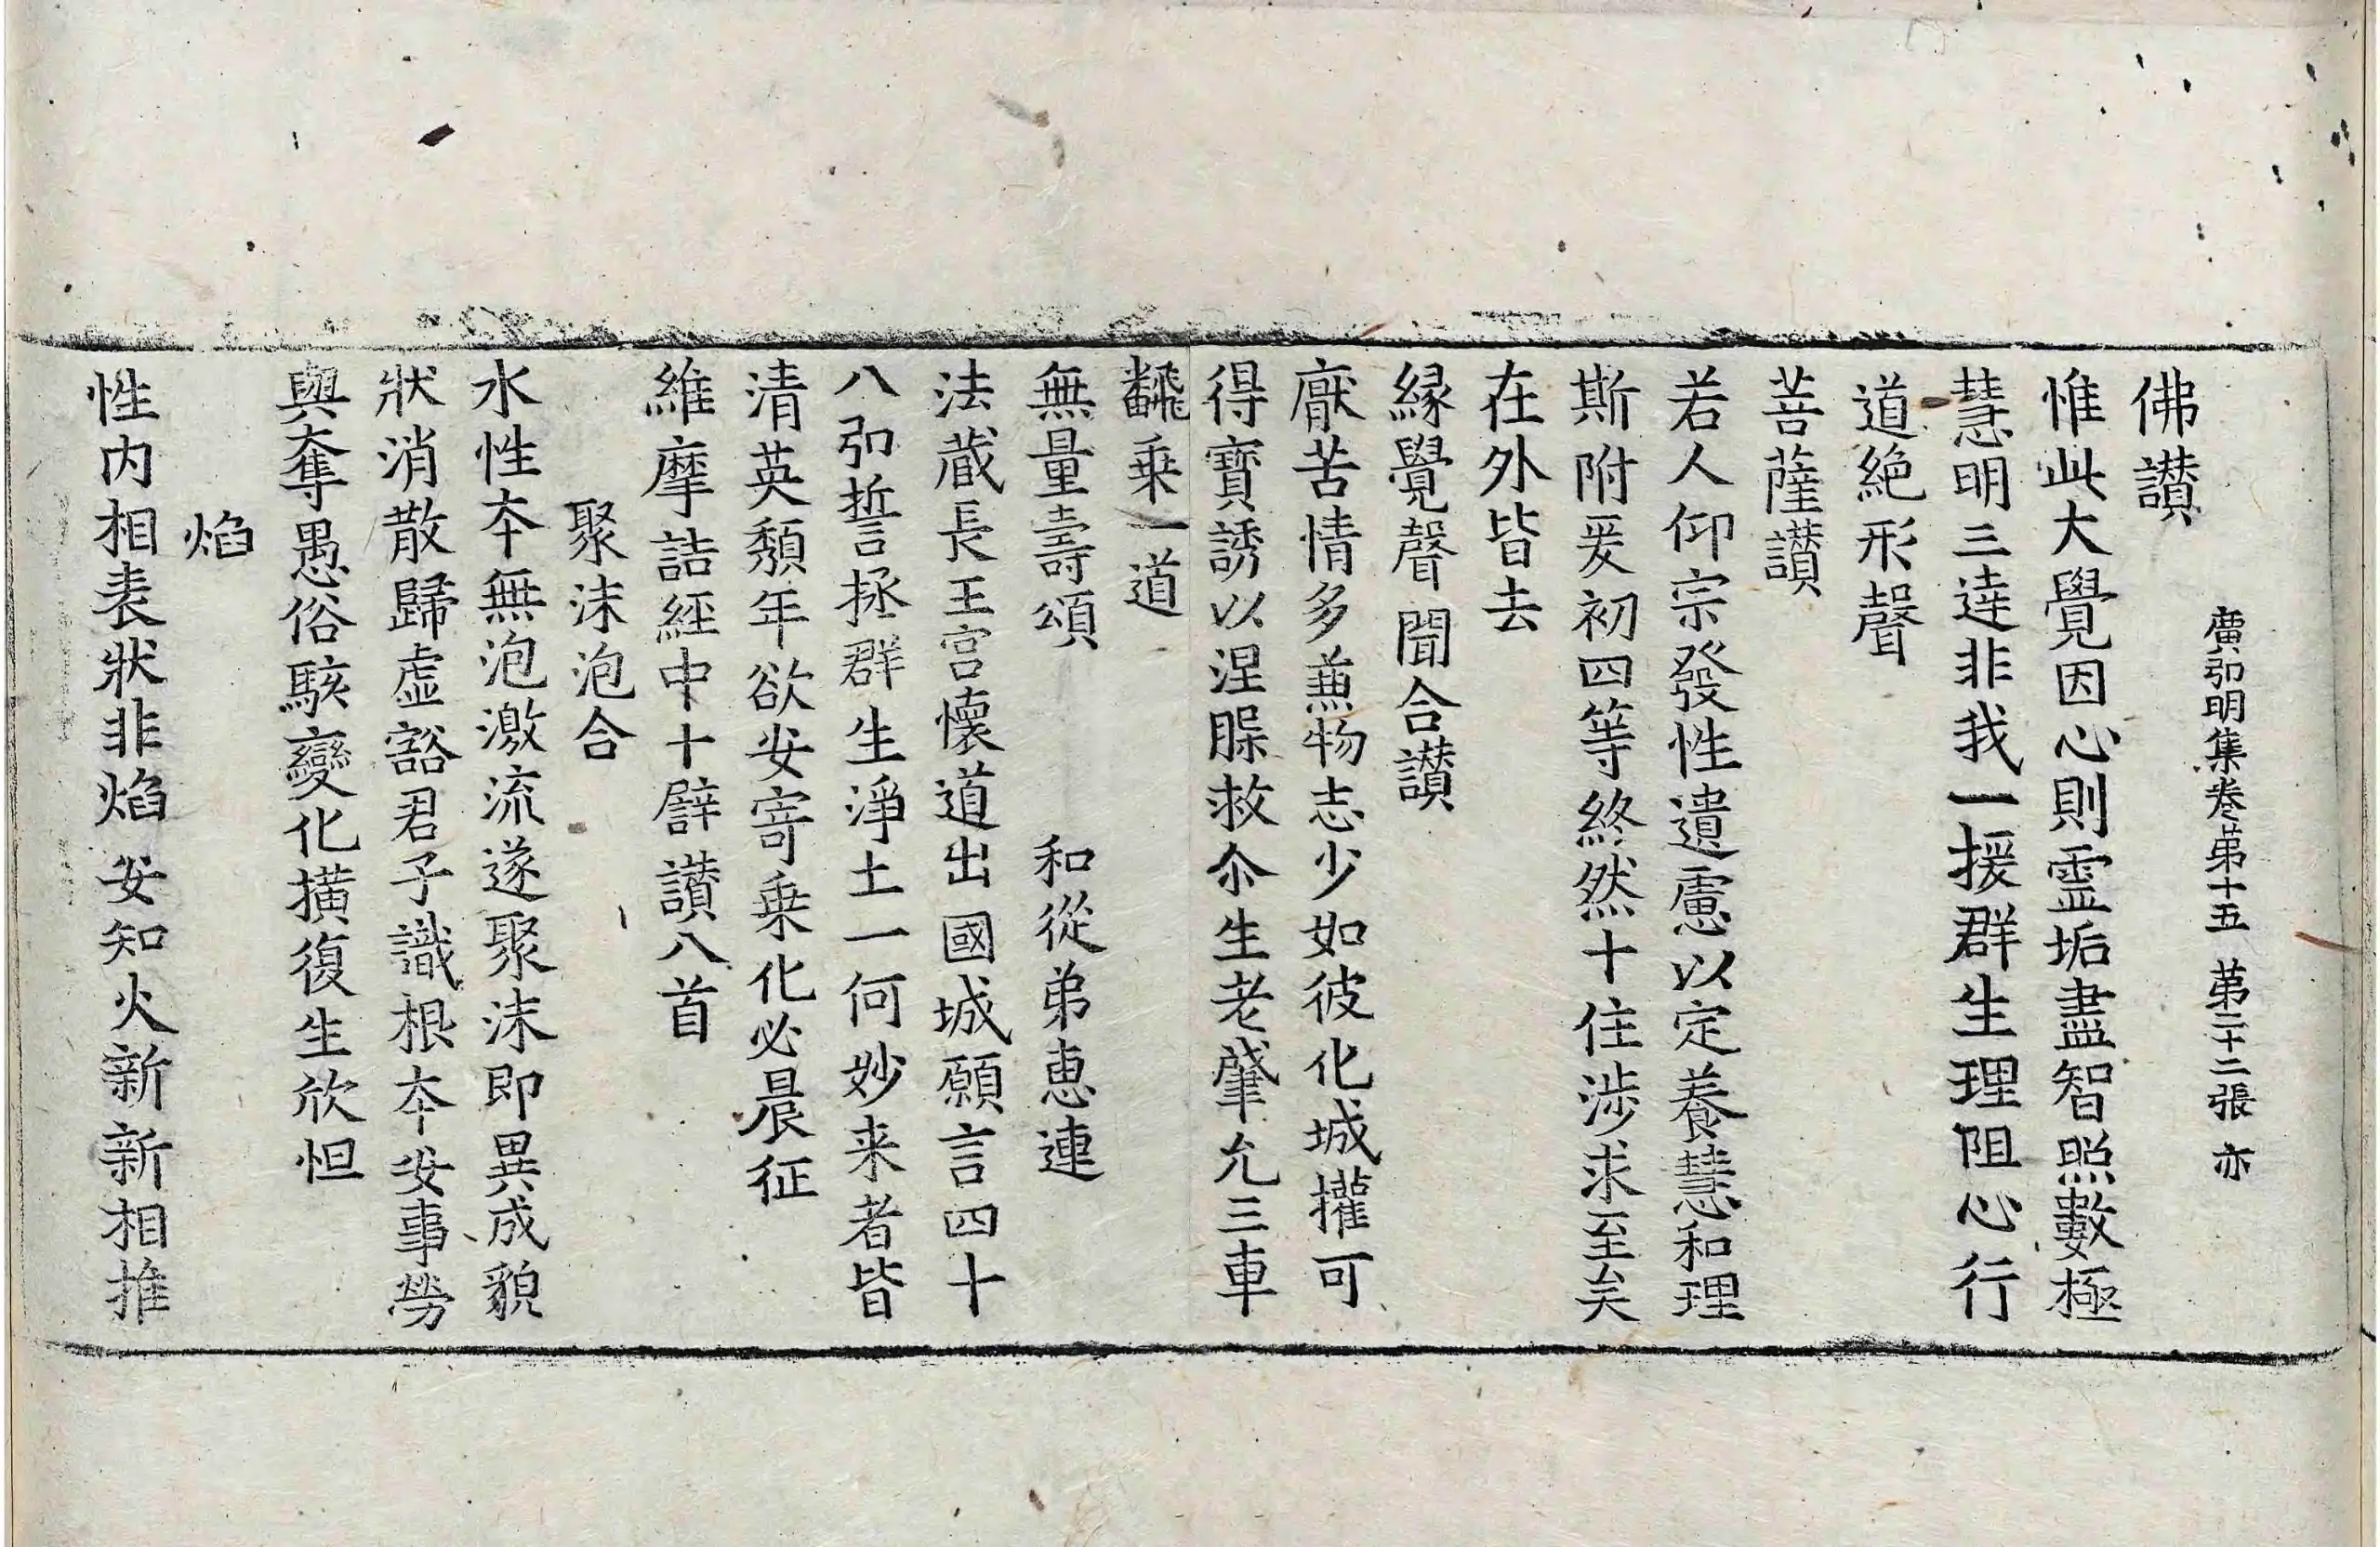 廣弘明集卷苐十五 苐二十二張 亦
佛讃
惟此大覺因心則靈垢盡智照數極
慧明三達非我一援群生理阻心行
道絶形聲
菩薩讃
若人仰宗發性遺慮以定養慧和理
斯附爰初四等終然十住涉求至矣
在外皆去
縁覺聲聞合讃
厭苦情多兼物志少如彼化城權可
得寶誘以涅脲救尒生老肇允三車
飜乗一道
無量壽頌 和從弟惠連
法蔵長王宫懷道出國城願言四十
八弘誓拯群生淨土一何妙来者皆
清英頽年欲安寄乗化必晨征
維摩詰経中十譬讃八首
聚沫泡合
水性夲無泡激流遂聚沫即異成貌
狀消散歸虚豁君子識根夲安事勞
與奪愚俗駭變化撗復生欣怛
焰
性内相表狀非焰安知火新新相推